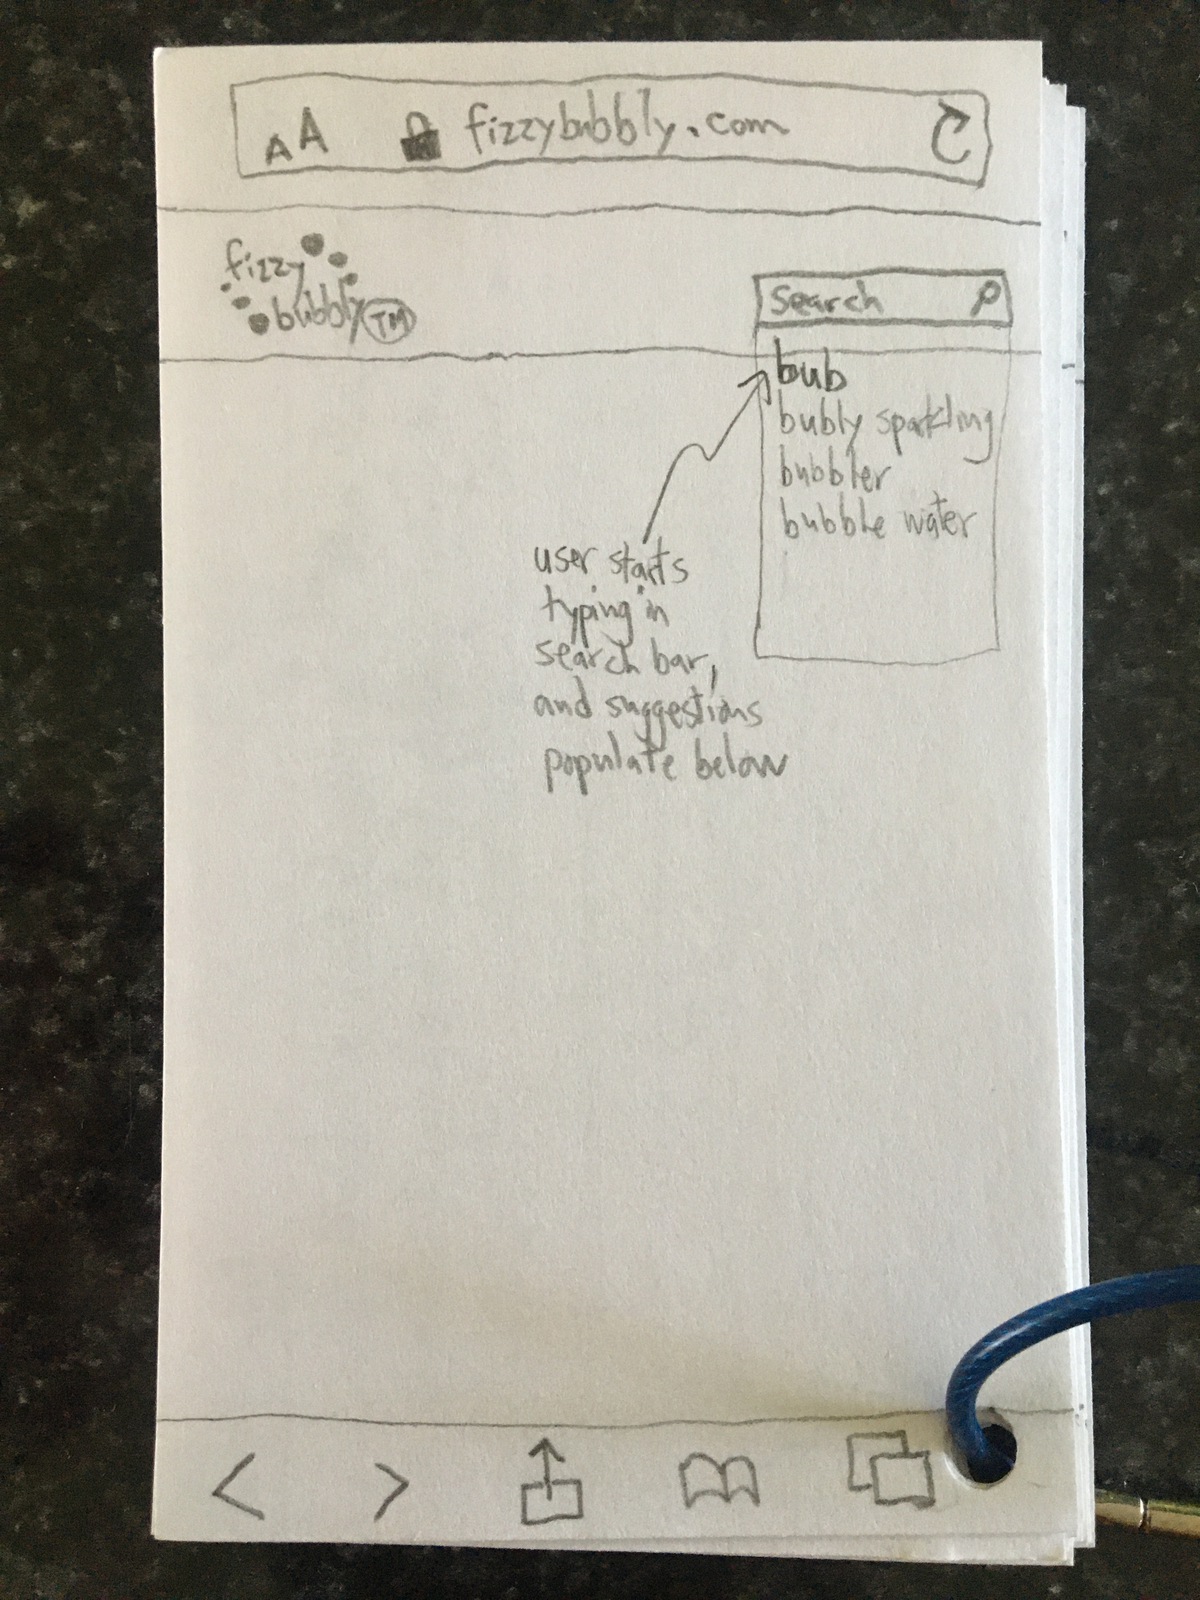 AA fizzybubbly.com
fizzy
bubbly TM
Search
bub
bubly sparkling
bubbler
bubble water
user starts
typing in
search bar,
and suggestions
populate below